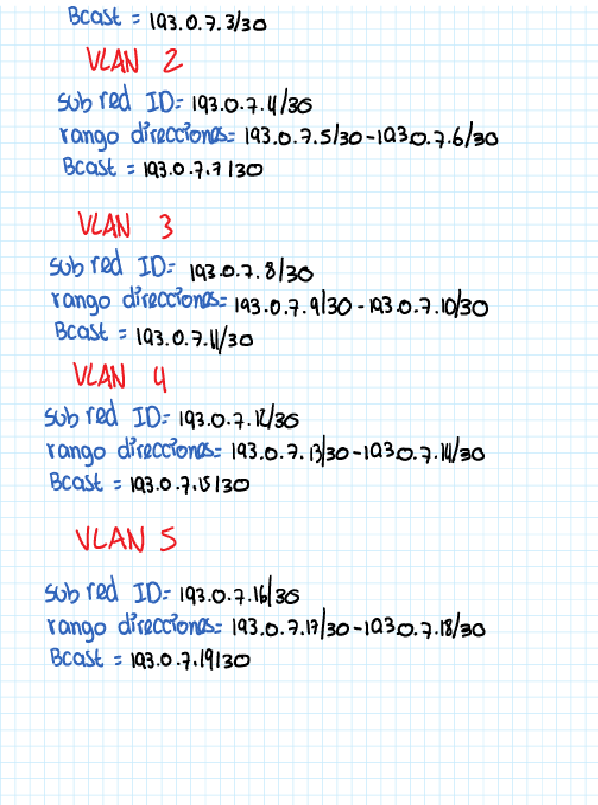 Bcast = 193.0.7.3/30
VLAN 2
sub red ID= 193.0.7.4/30
rango direcciones= 193.0.7.5/30-193.0.7.6/30
Bcast = 193.0.7.7/30
VLAN 3
sub red ID= 193.0.7.8/30
rango direcciones= 193.0.7.9/30-193.0.7.10/30
Bcast = 193.0.7.11/30
VLAN 4
sub red ID= 193.0.7.12/30
rango direcciones= 193.0.7.13/30-193.0.7.14/30
Bcast = 193.0.7.15/30
VLAN 5
sub red ID= 193.0.7.16/30
rango direcciones= 193.0.7.17/30-193.0.7.18/30
Bcast = 193.0.7.19/30